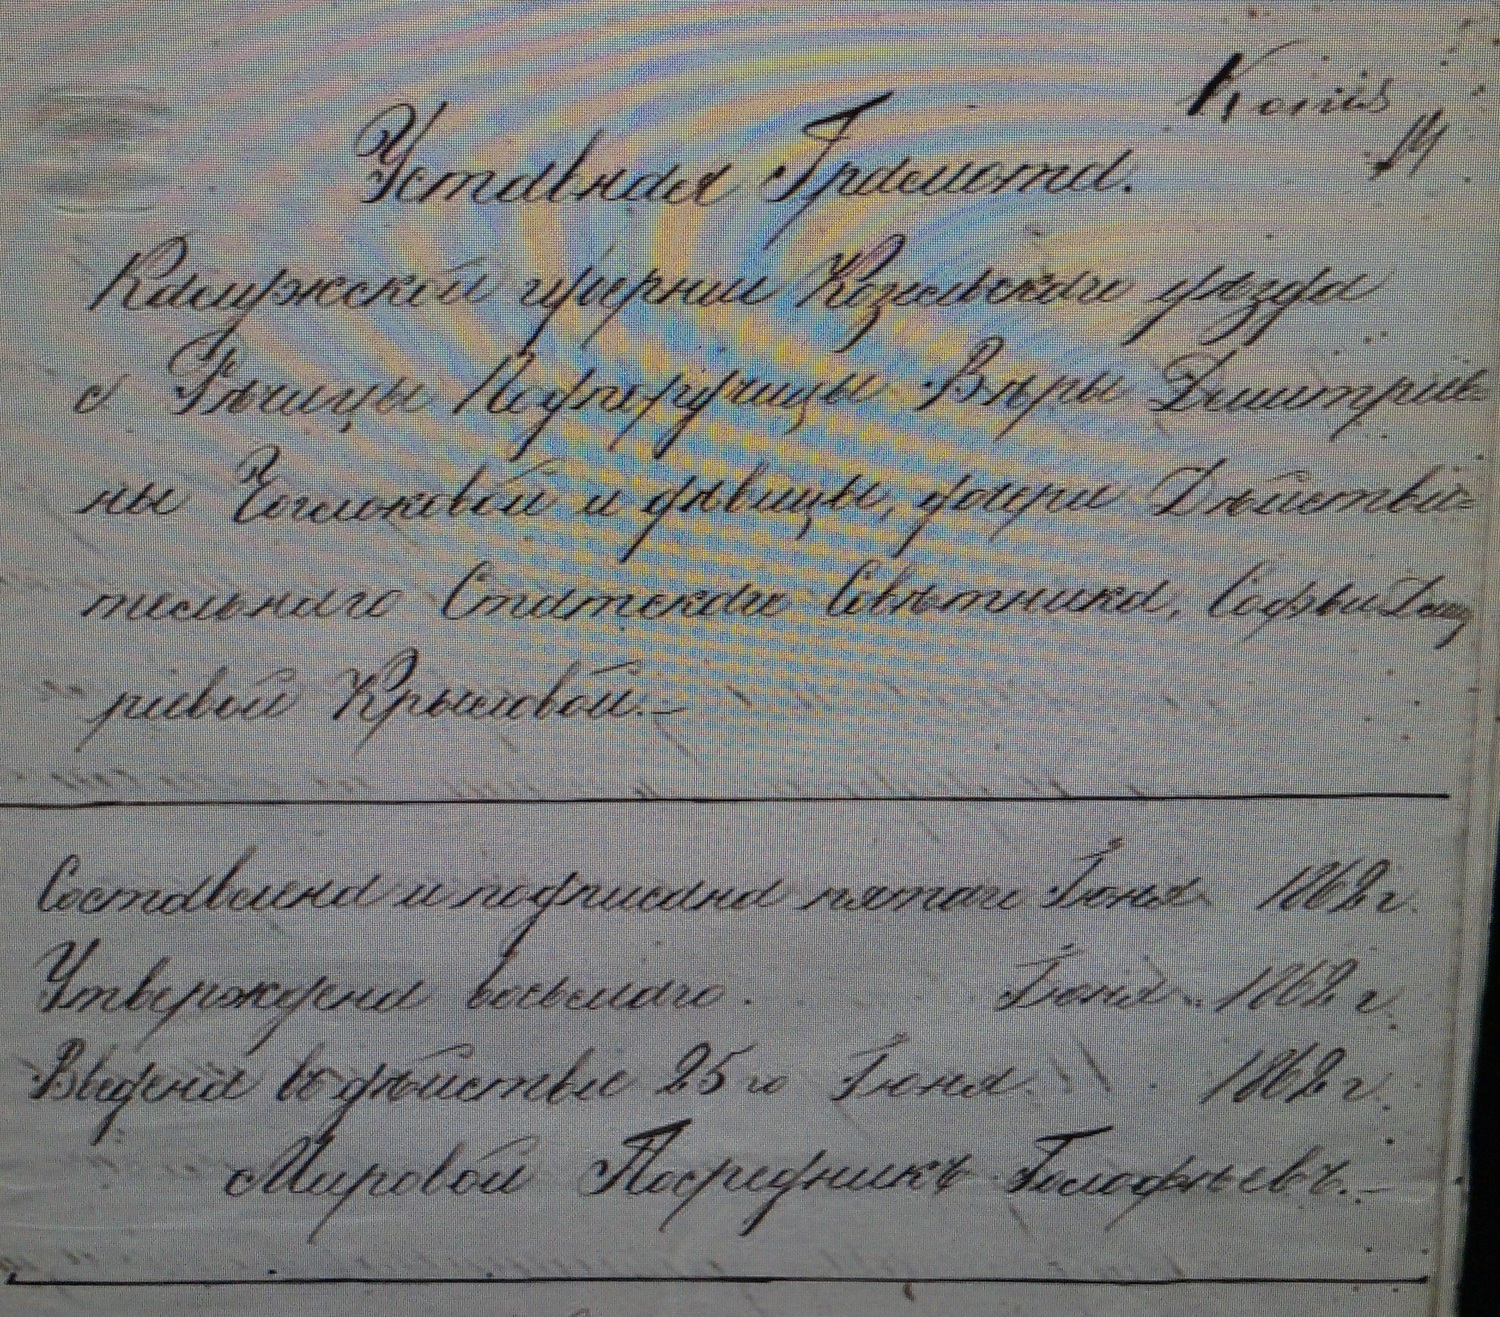 Копія
14
Уставная Грамота.
Калужской губерніи Козельскаго уѣзда
с. Рѣчицы Подпоручицы Вѣры Дмитріев-
ны Чоглоковой и дѣвицы, дочери Дѣйстви-
тельнаго Статскаго Совѣтника, Софьи Дмит
ріевой Крыловой.—
Составлена и подписана пятаго Іюня 1862 г.
Утверждена восьмаго. Іюня. 1862 г.
Введена въ дѣйствіе 25 го Іюня. 1862 г.
Мировой Посредникъ Голофѣевъ.—